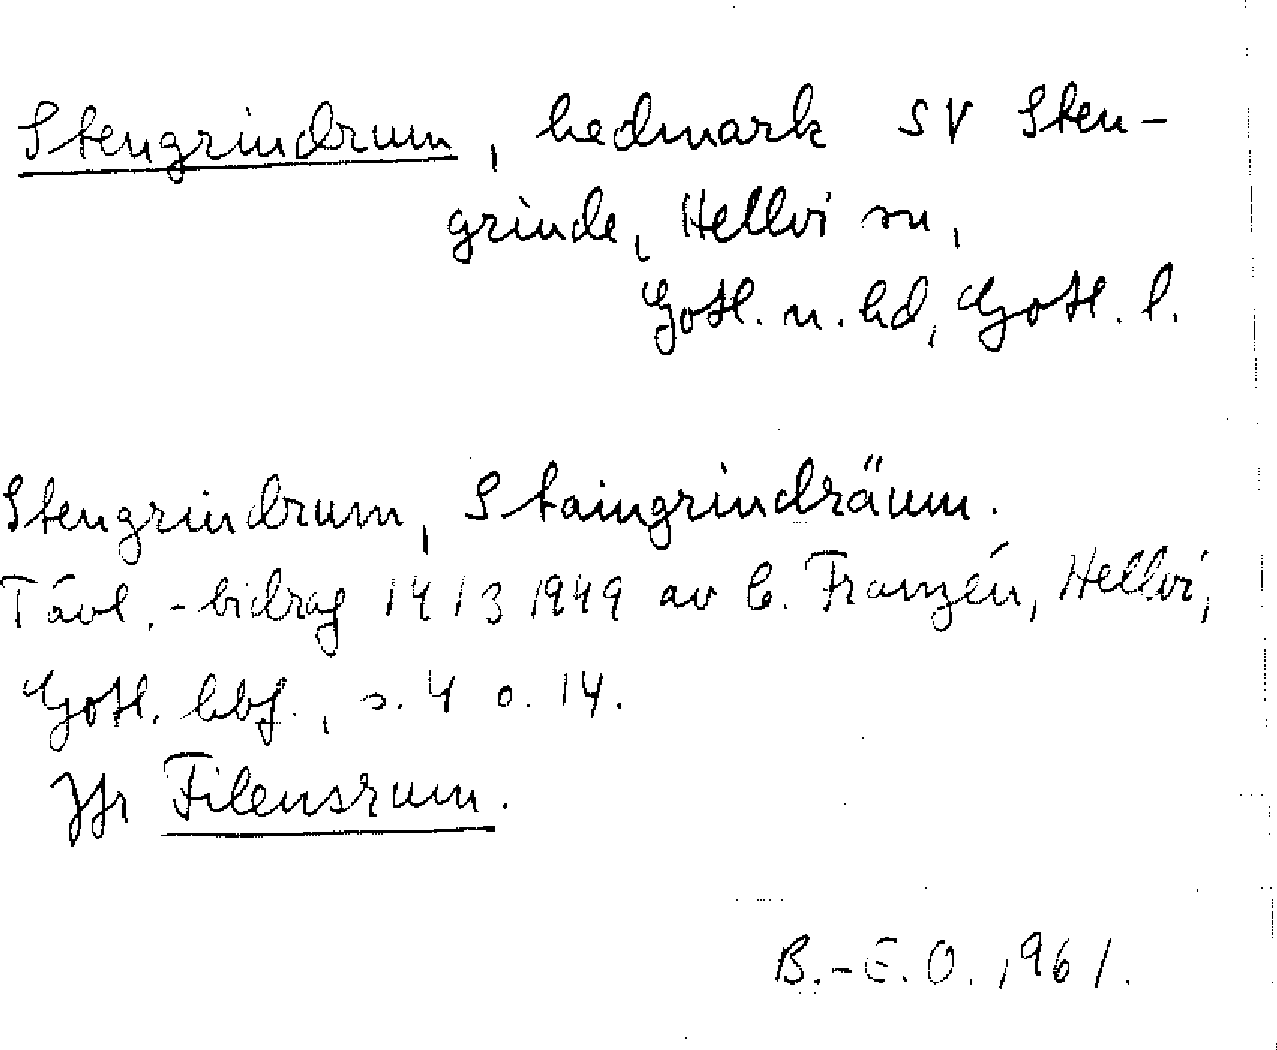 Stengrindrum, hedmark SV Sten-
grinde, Hellvi sn,
Gotl. n. hd, Gotl. l.
Stengrindrum, Staingrindräum.
Tävl.-bidrag 14/3 1949 av C. Franzén, Hellvi,
Gotl. hbf., s. 4 o. 14.
Jfr Filensrum.
B.-E. O. 1961.